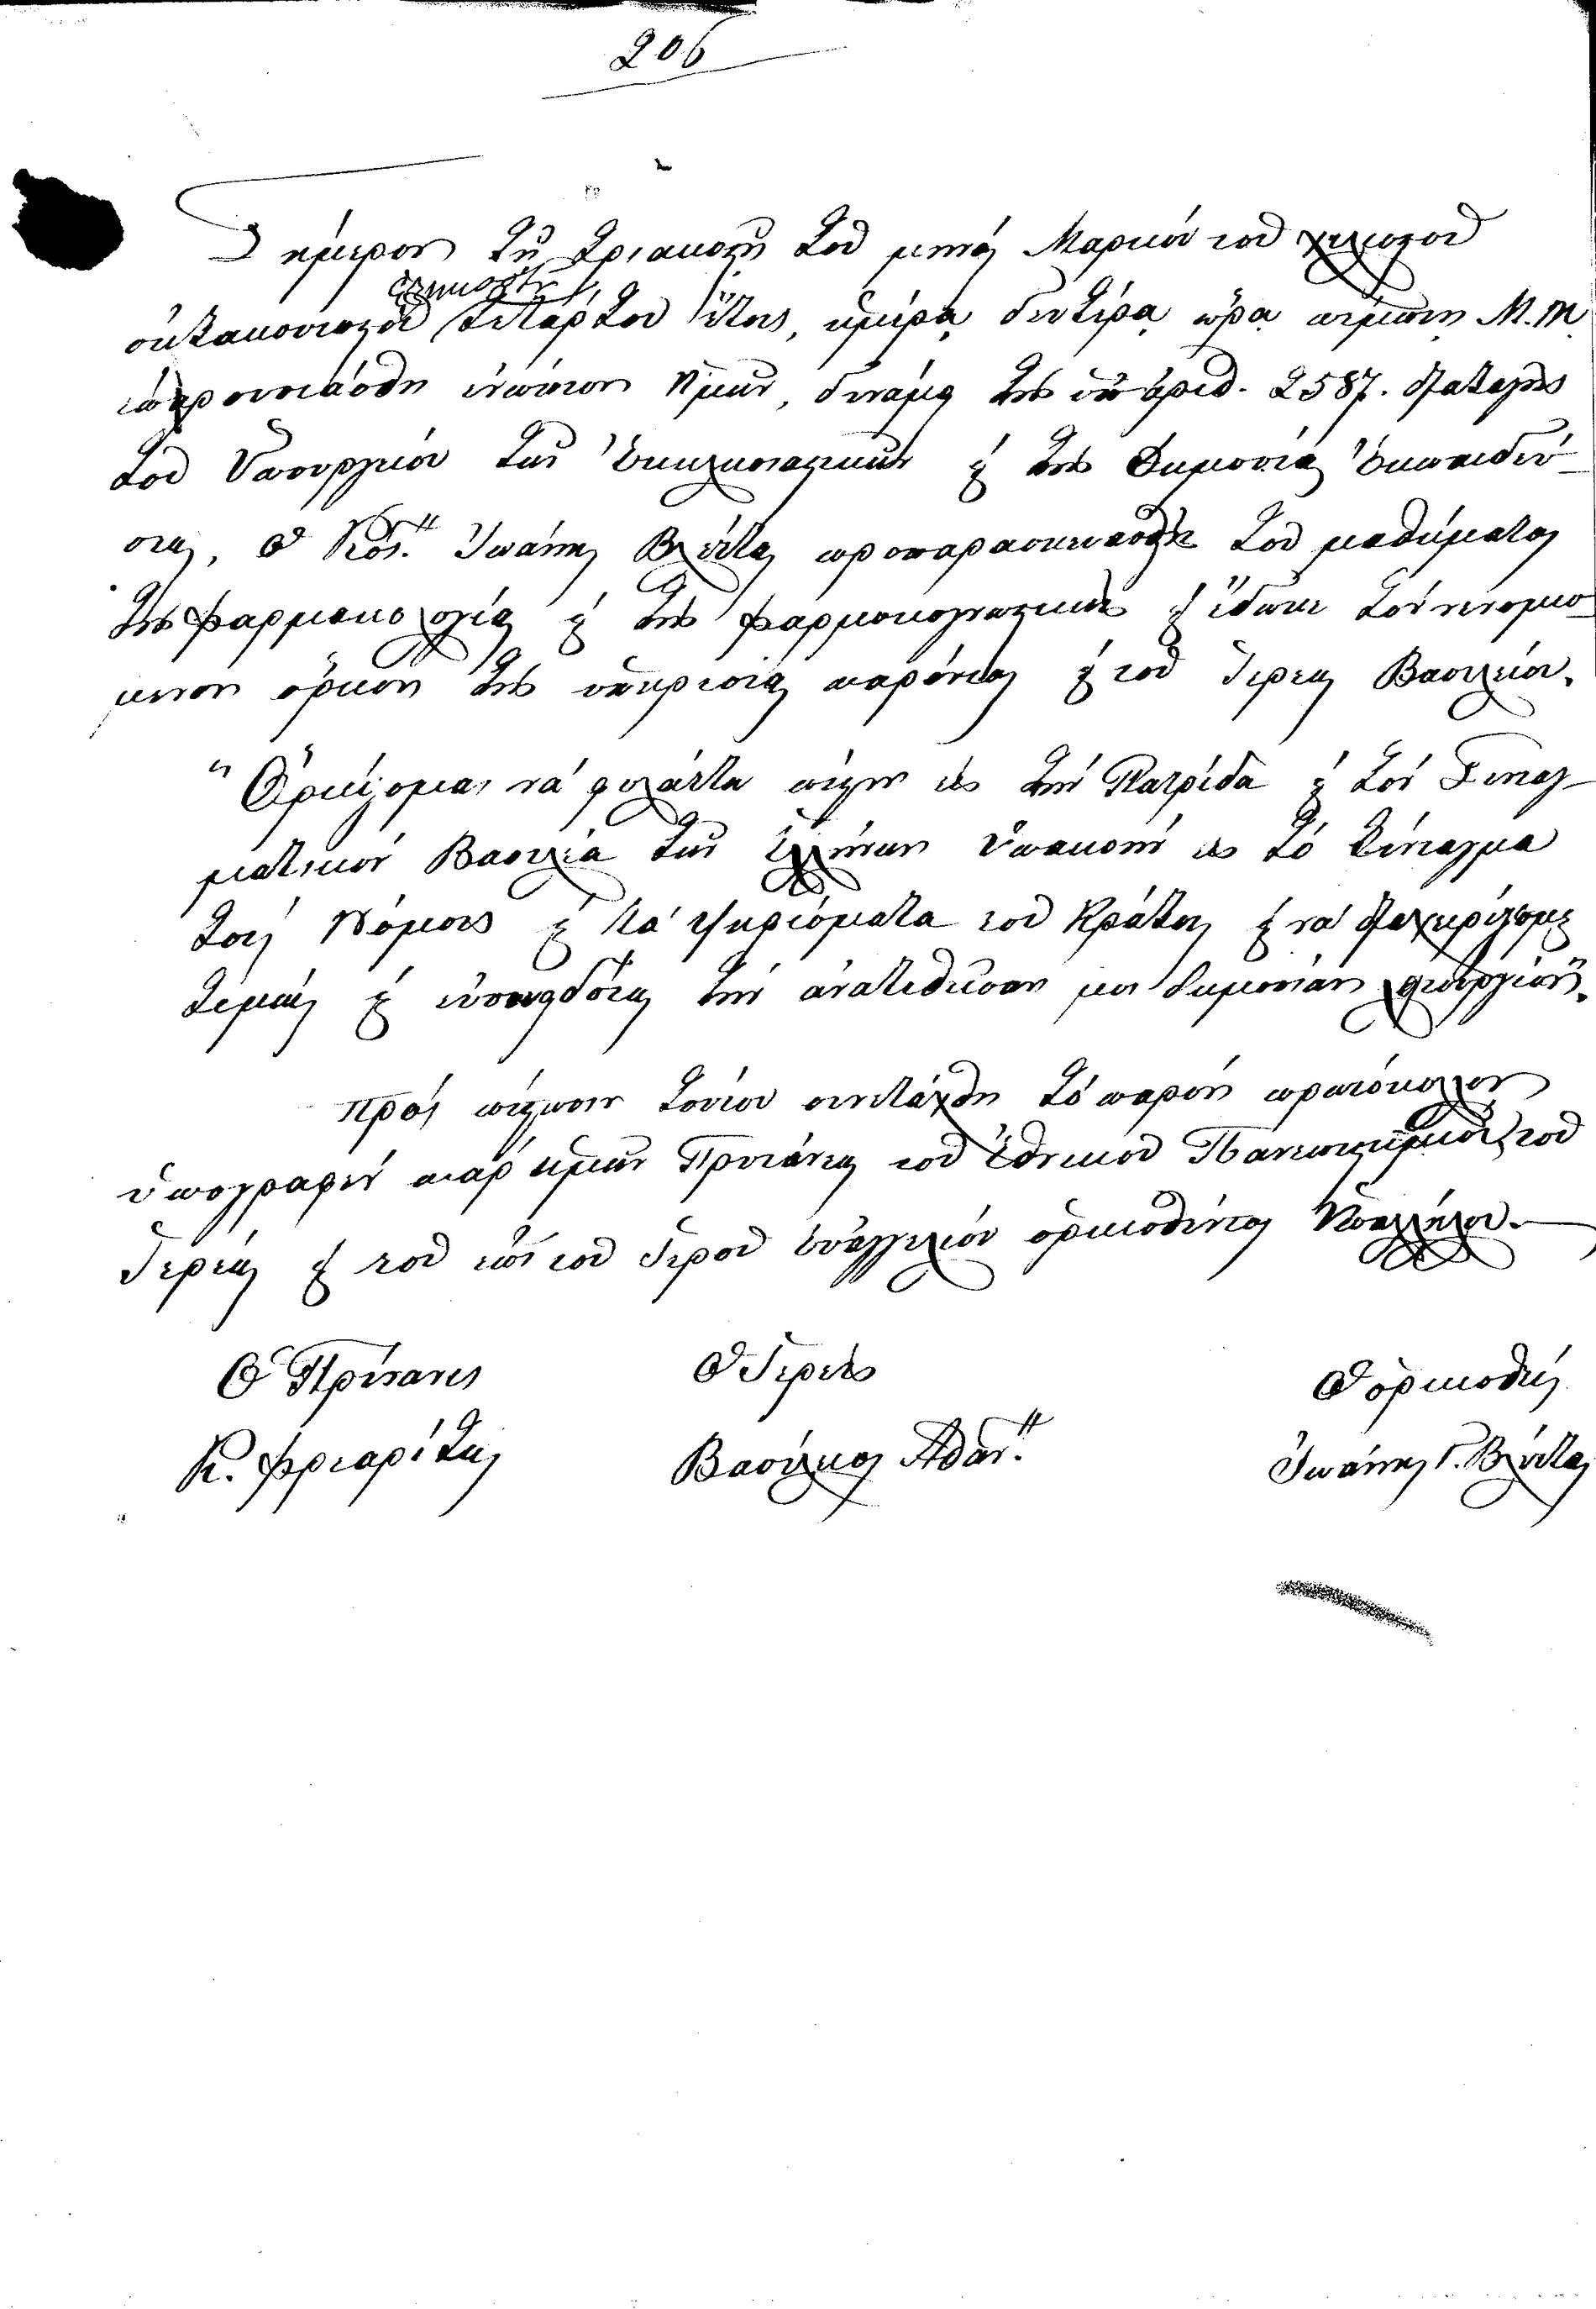 206
Σήμερον τῇ τριακοστῇ τοῦ μηνός Μαρτίου τοῦ χιλιοστοῦ
ὀκτακοσιοστοῦ ἑξηκοστοῦ τετάρτου ἔτους, ἡμέρᾳ δευτέρᾳ ὥρᾳ πέμπτῃ Μ.Μ.
ἐπαρουσιάσθη ἐνώπιον ἡμῶν, δυνάμει τῆς ὑπ' ἀριθ. 2587. διαταγῆς
τοῦ Ὑπουργείου τῶν Ἐκκλησιαστικῶν καὶ τῆς Δημοσίας Ἐκπαιδεύ-
σεως, ὁ Κος. Ἰωάννης Βλύτας προπαρασκευαστὴς τοῦ μαθήματος
τῆς Φαρμακολογίας καὶ τῆς Φαρμακογνωστικῆς καὶ ἔδωκε τὸν νενομισ-
μένον ὅρκον τῆς ὑπηρεσίας παρόντος καὶ τοῦ Ἱερέως Βασιλείου.
"Ὁρκίζομαι νά φυλάττω πίστιν εἰς τήν Πατρίδα καὶ τόν Συνταγ-
ματικόν Βασιλέα τῶν Ἑλλήνων ὑπακοήν εἰς τό Σύνταγμα
τούς Νόμους καὶ τά ψηφίσματα τοῦ Κράτους καὶ νά διαχειρίζωμαι
τιμίως καὶ εὐσυνειδότως τήν ἀνατεθεῖσαν μοι δημοσίαν λειτουργίαν".
Πρός πίστωσιν τούτου συνετάχθη τό παρόν πρωτόκολλον
ὑπογραφέν παρ' ἡμῶν Πρυτάνεως τοῦ Ἐθνικοῦ Πανεπιστημίου, τοῦ
Ἱερέως καὶ τοῦ ἐπί τοῦ Ἱεροῦ Εὐαγγελίου ὁρκισθέντος Ὑπαλλήλου.
Ὁ Πρύτανις
Ὁ Ἱερεύς
Ὁ ὁρκισθείς
Κ. Φρεαρίτης
Βασίλειος Ἀθαν.
Ἰωάννης Γ. Βλύτας